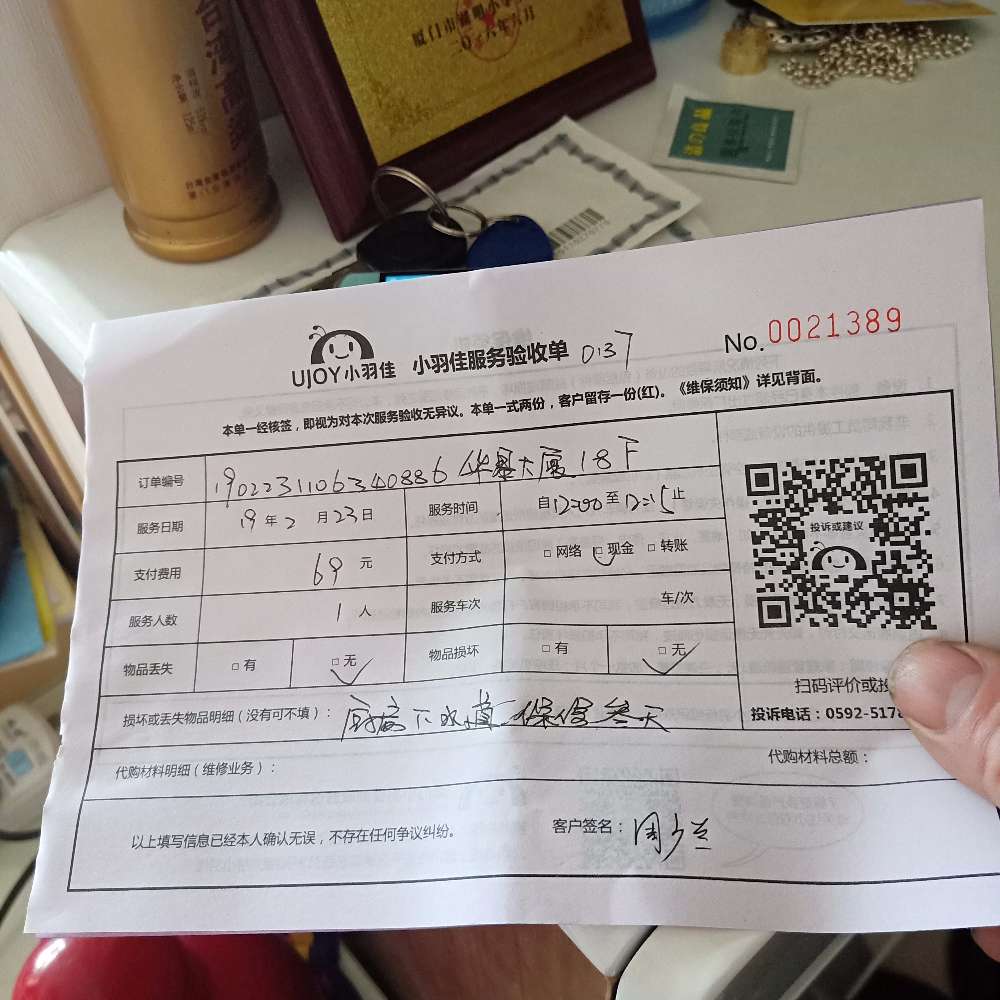 厦门市
台湾高粱
净含量
UJOY小羽佳 小羽佳服务验收单 0137
No.0021389
本单一经核签，即视为对本次服务验收无异议。本单一式两份，客户留存一份(红)。《维保须知》详见背面。
订单编号 1902231106340886 华晟大厦18F
服务日期 19年2月23日 服务时间 自12:00至12:15止
支付费用 69元 支付方式 □网络 □现金 □转账
服务人数 1人 服务车次 车/次
物品丢失 □有 □无 物品损坏 □有 □无
投诉或建议
扫码评价或投
投诉电话：0592-517
损坏或丢失物品明细（没有可不填）： 厨房下水道 保修叁天
代购材料明细（维修业务）： 代购材料总额：
以上填写信息已经本人确认无误，不存在任何争议纠纷。 客户签名：周少兰